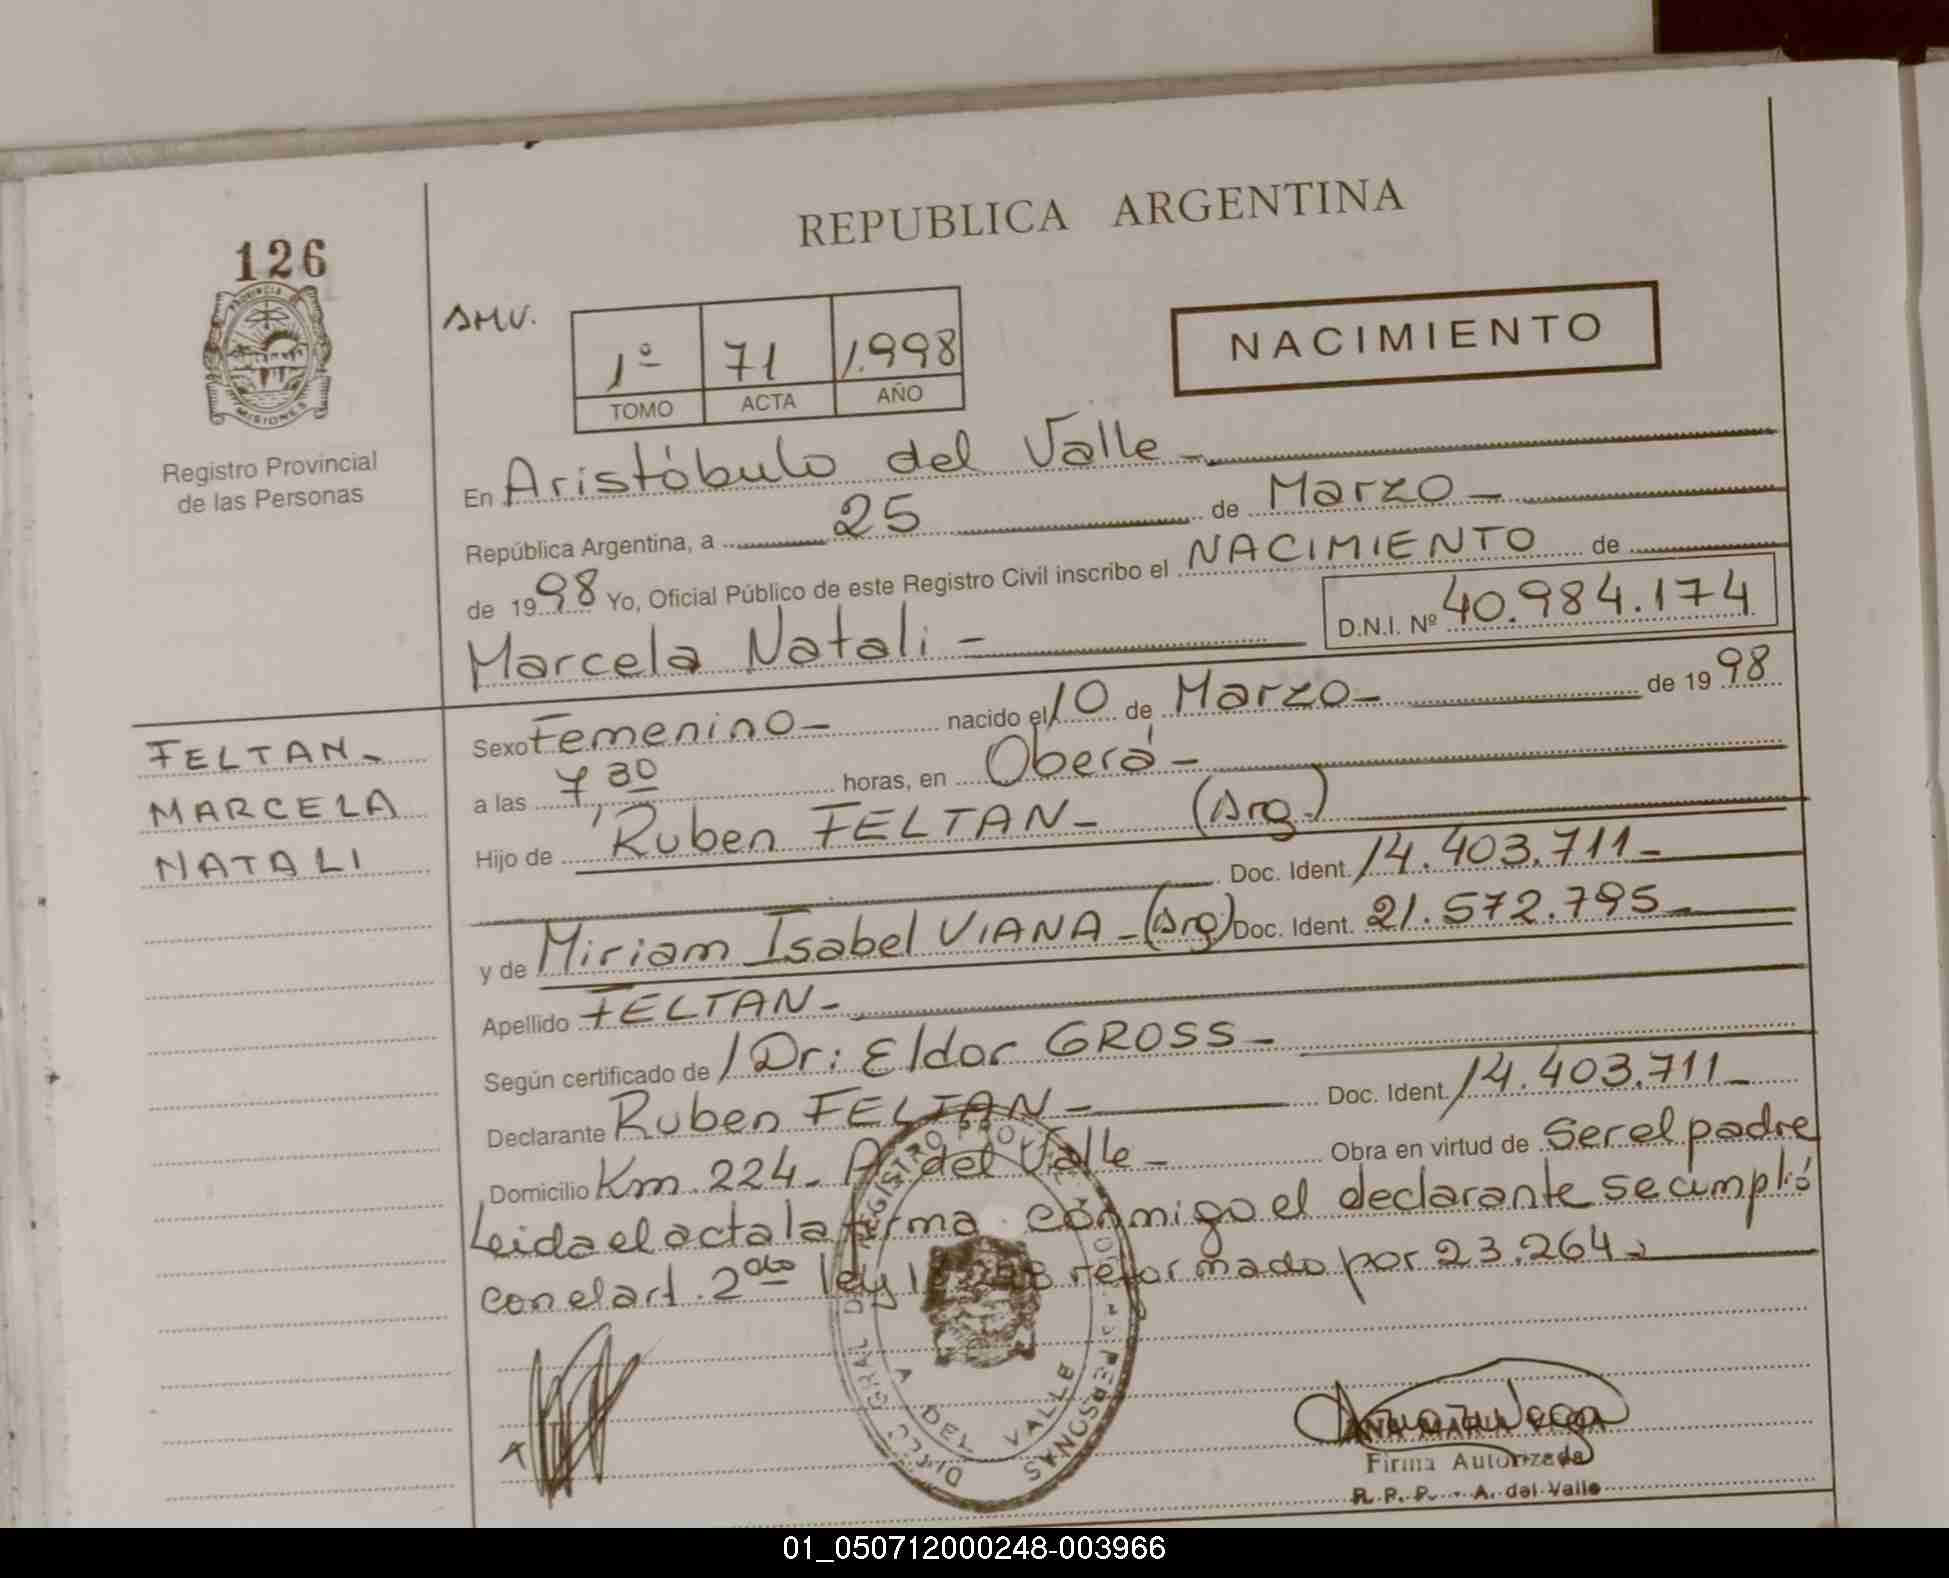 REPUBLICA ARGENTINA
126
PROVINCIA
MISIONES
Registro Provincial
de las Personas
1º 71 1.998
TOMO ACTA AÑO
NACIMIENTO
En Aristóbulo del Valle -
República Argentina, a 25 de Marzo -
de 1998 Yo, Oficial Público de este Registro Civil inscribo el NACIMIENTO de
Marcela Natali - D.N.I. Nº 40.984.174
FELTAN -
MARCELA
NATALI
Sexo Femenino - nacido el 10 de Marzo - de 1998
a las 7,30 horas, en Oberá -
Hijo de Ruben FELTAN - (Arg.)
Doc. Ident. 14.403.711 -
y de Miriam Isabel VIANA - (Arg) Doc. Ident. 21.572.795 -
Apellido FELTAN -
Según certificado de / Dr: Eldor GROSS -
Declarante Ruben FELTAN - Doc. Ident. 14.403.711 -
Domicilio Km 224 - A. del Valle - Obra en virtud de ser el padre
Leida el acta la firma conmigo el declarante se cumplió
con el art. 2do ley reformado por 23.264 -
A DEL VALLE
ANA MARIA VEGA
Firma Autorizada
R. P. P. - A. del Valle
01_050712000248-003966